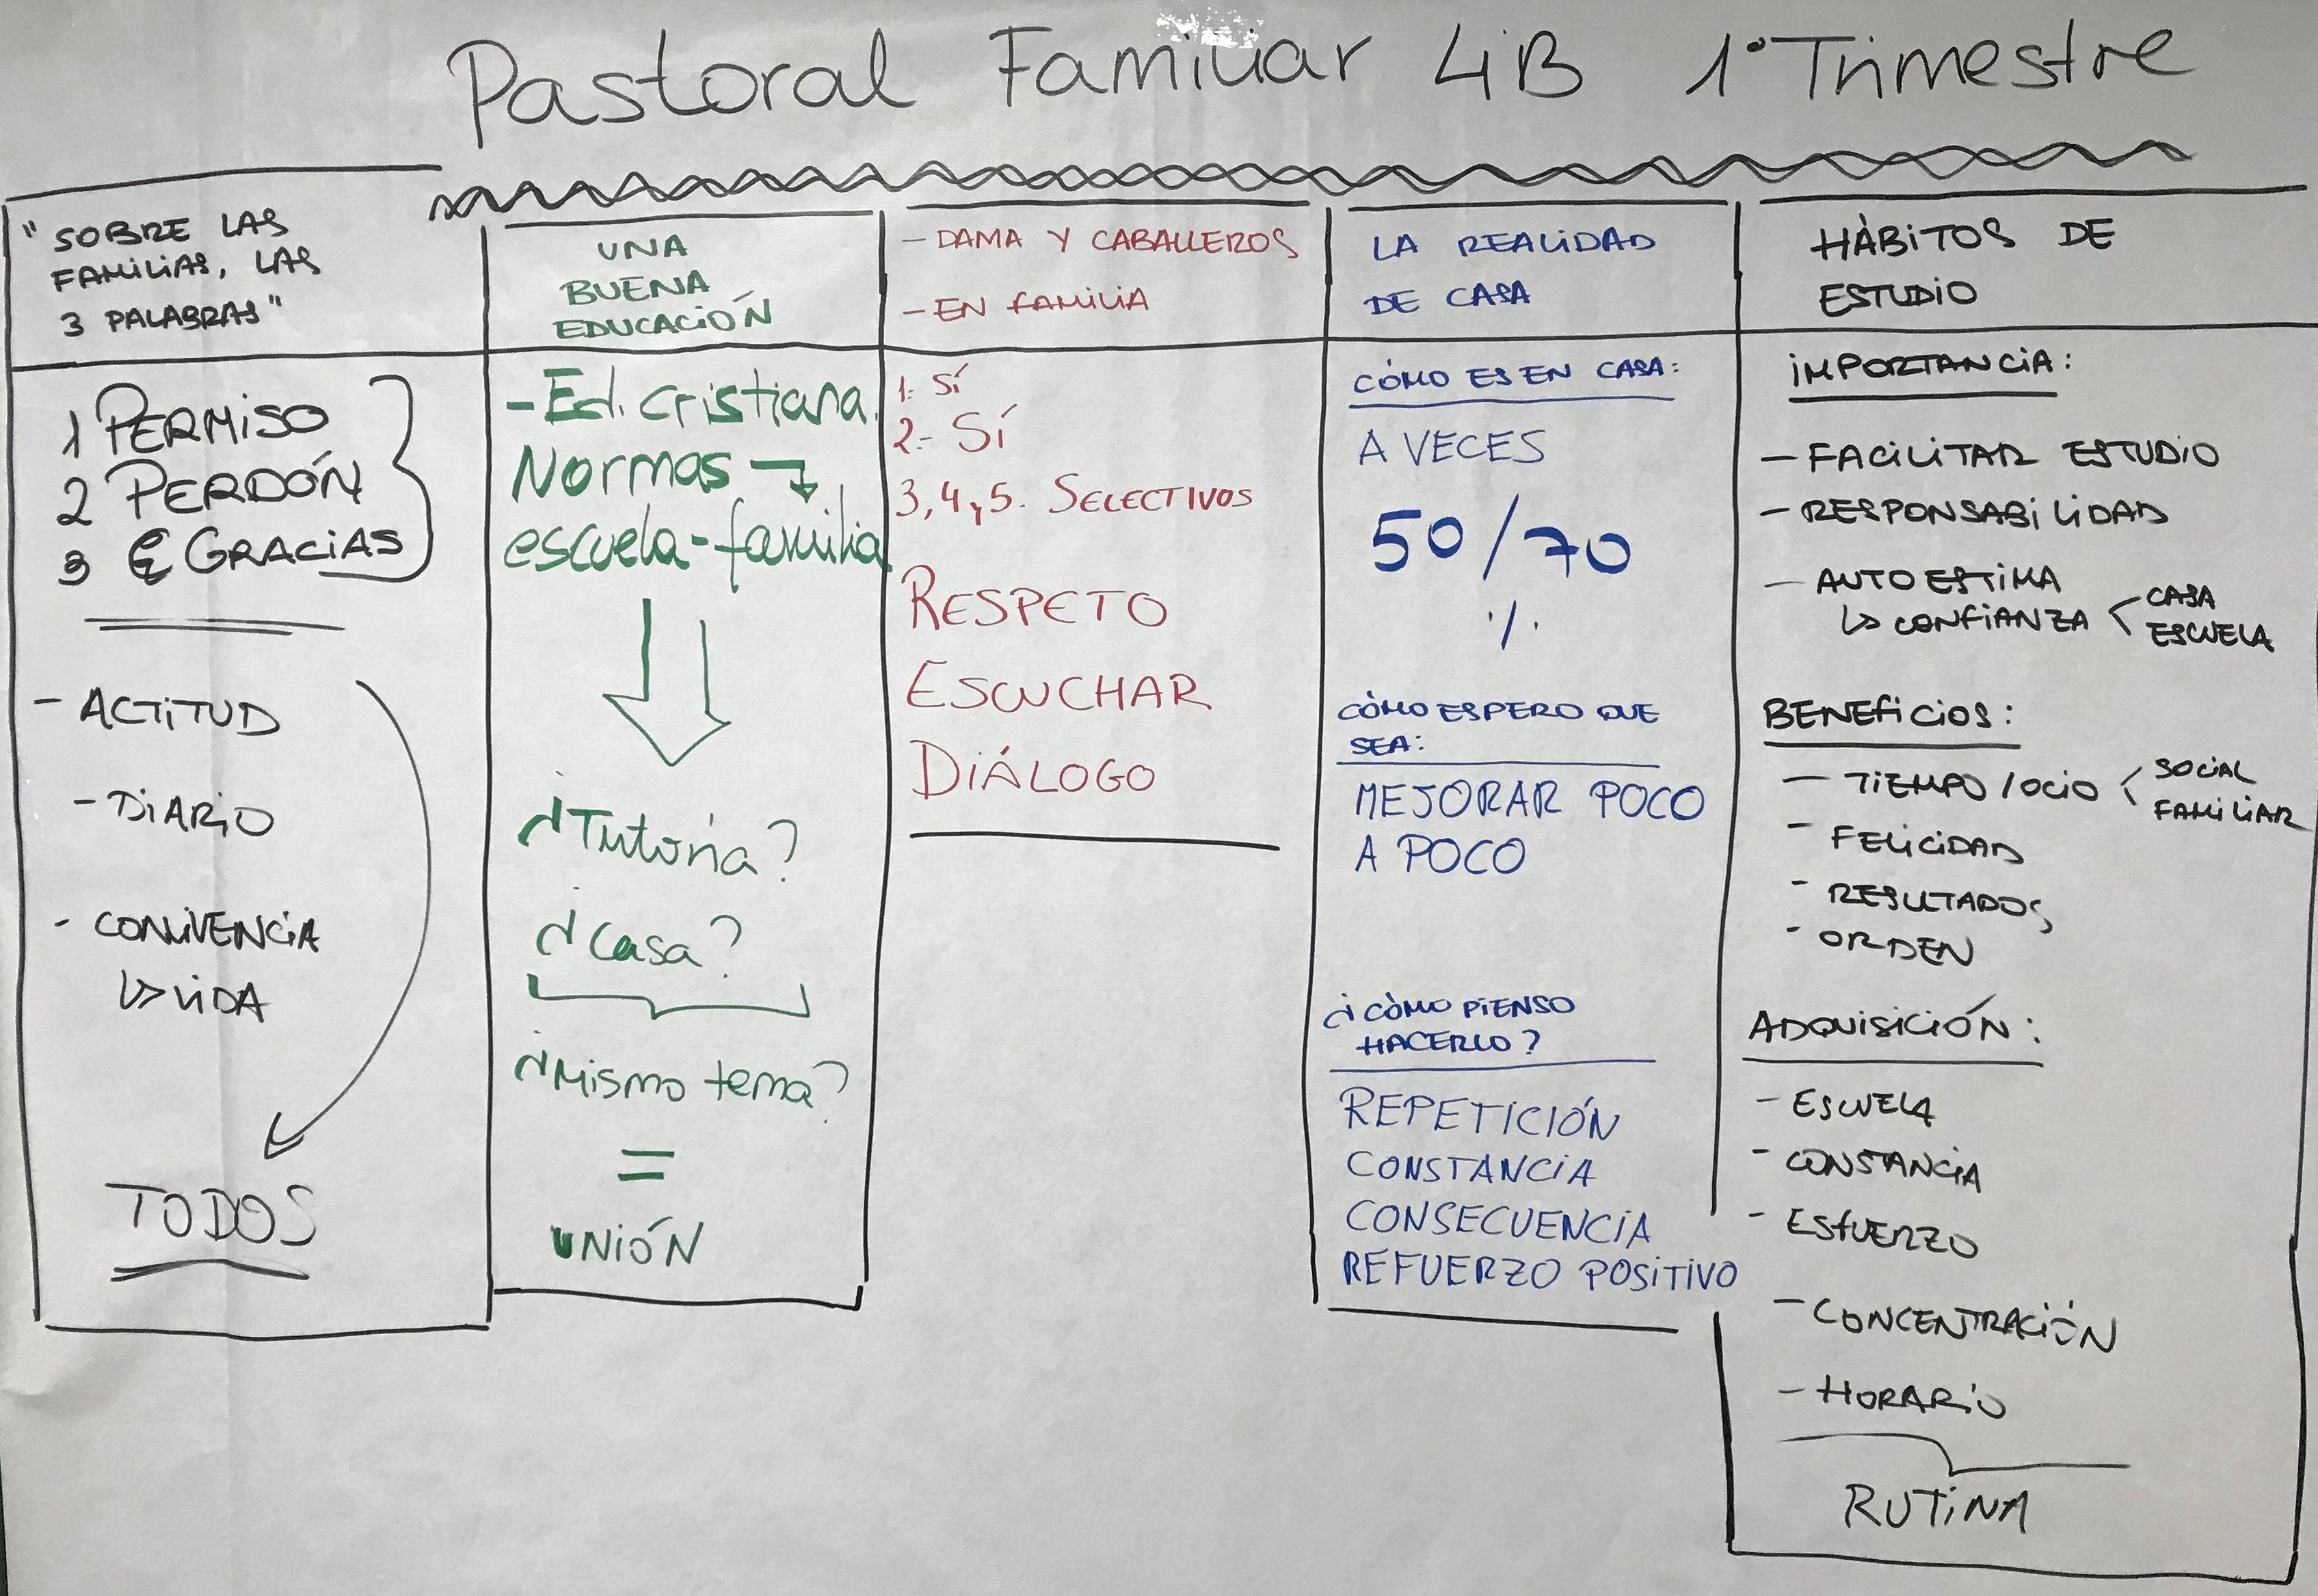 Pastoral Familiar 4B 1º Trimestre
"SOBRE LAS
FAMILIAS, LAS
3 PALABRAS"
1 PERMISO
2 PERDÓN
3 GRACIAS
- ACTITUD
- DIARIO
- CONVIVENCIA
↳ VIDA
TODOS
UNA
BUENA
EDUCACIÓN
- Ed. cristiana.
Normas
escuela-familia
¿Tutoría?
¿Casa?
¿Mismo tema?
=
UNIÓN
- DAMA Y CABALLEROS
- EN FAMILIA
1. SÍ
2.- SÍ
3, 4 y 5. SELECTIVOS
RESPETO
ESCUCHAR
DIÁLOGO
LA REALIDAD
DE CASA
CÓMO ES EN CASA:
A VECES
50/70
%
CÒMO ESPERO QUE
SEA:
MEJORAR POCO
A POCO
¿CÒMO PIENSO
HACERLO?
REPETICIÓN
CONSTANCIA
CONSECUENCIA
REFUERZO POSITIVO
HÀBITOS DE
ESTUDIO
IMPORTANCIA:
- FACILITAR ESTUDIO
- RESPONSABILIDAD
- AUTOESTIMA
↳ CONFIANZA < CASA
ESCUELA
BENEFICIOS:
- TIEMPO/OCIO < SOCIAL
FAMILIAR
- FELICIDAD
- RESULTADOS
- ORDEN
ADQUISICIÓN:
- ESCUELA
- CONSTANCIA
- ESFUERZO
- CONCENTRACIÓN
- HORARIO
RUTINA